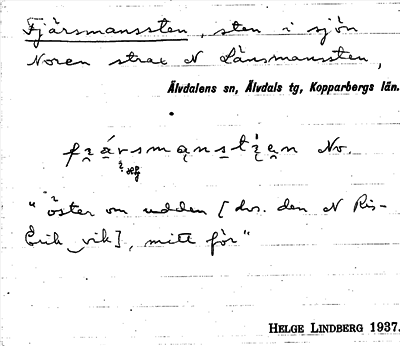 Fjärsmanssten, sten i sjön
Noren strax N Länsmanssten,
Älvdalens sn, Älvdals tg, Kopparbergs län.
No.
"öster om udden [dvs. den N Ris-
Erik_vik], mitt för"
HELGE LINDBERG 1937.